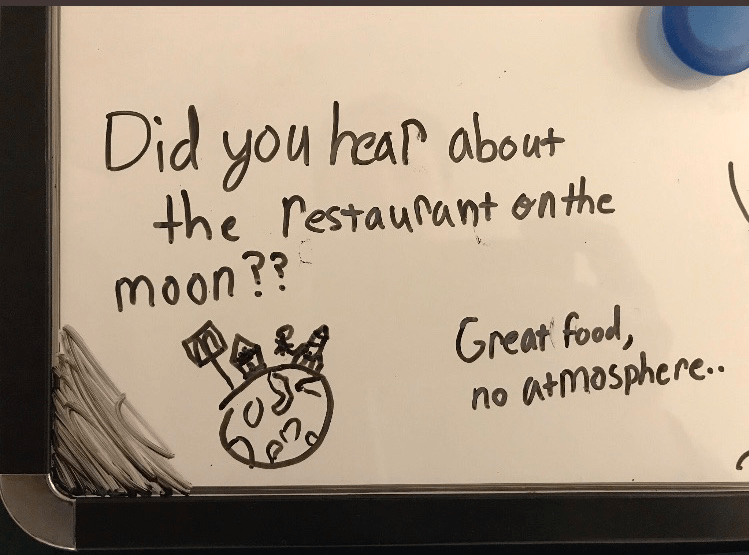 Did you hear about
the restaurant on the
moon??
Great food,
no atmosphere..